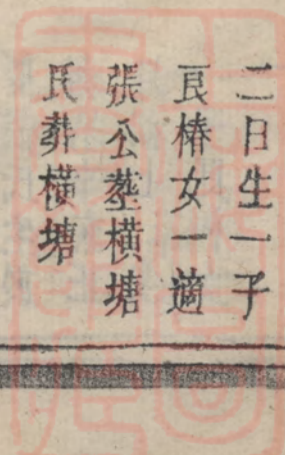 二日生一子
良椿女一適
張公塟橫塘
氏葬橫塘